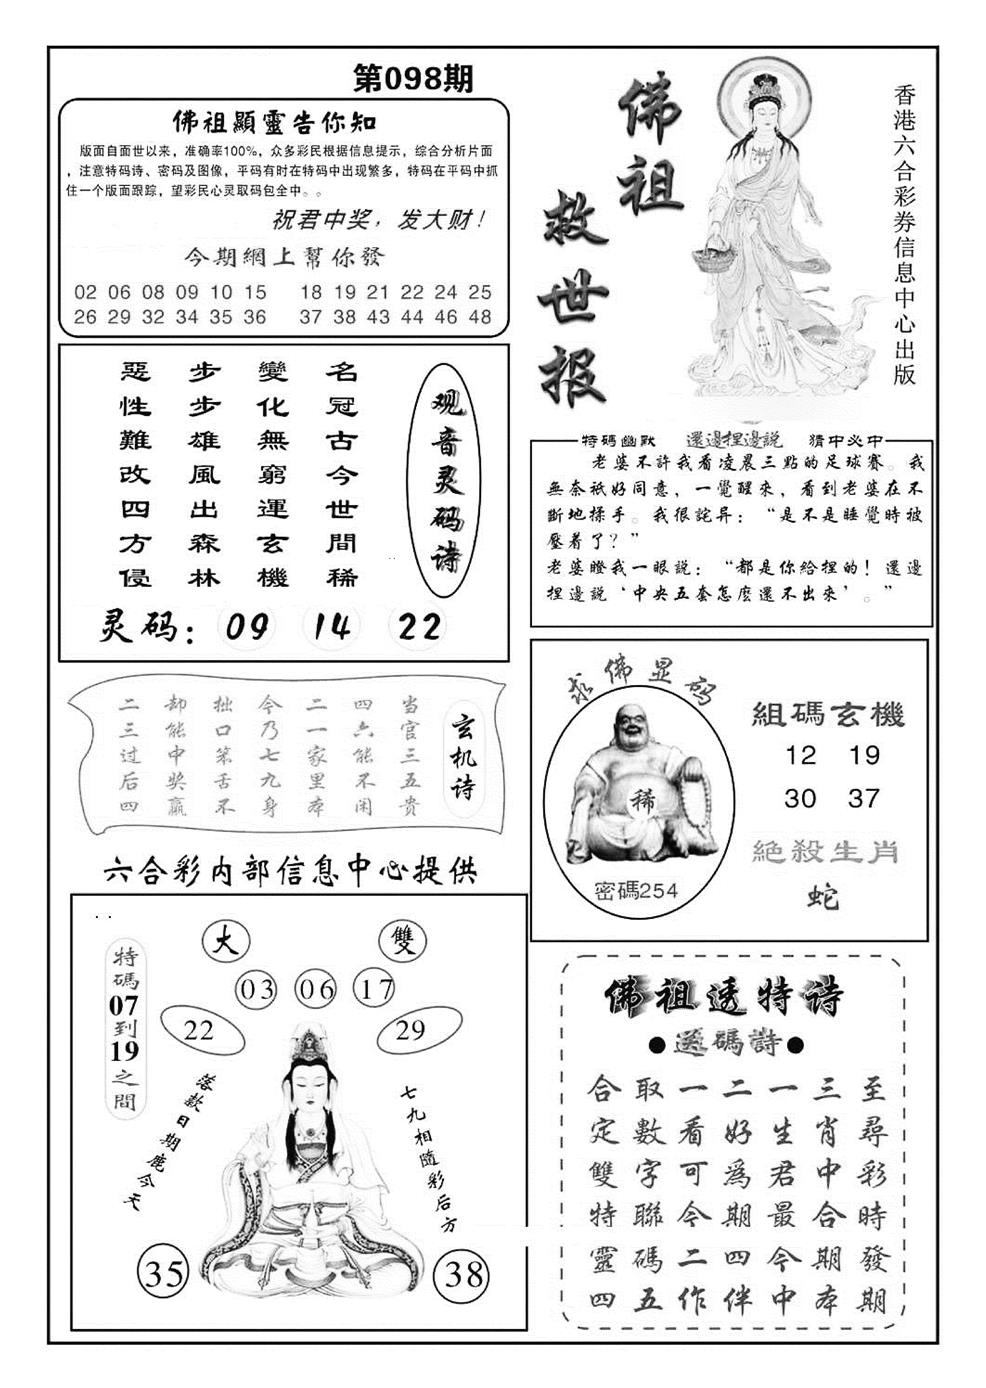 第098期
佛祖顯靈告你知
版面自面世以来，准确率100%，众多彩民根据信息提示，综合分析片面
，注意特码诗、密码及图像，平码有时在特码中出现繁多，特码在平码中抓
住一个版面跟踪，望彩民心灵取码包全中。。
祝君中奖，发大财！
今期網上幫你發
02 06 08 09 10 15 18 19 21 22 24 25
26 29 32 34 35 36 37 38 43 44 46 48
佛祖
救世报
香港六合彩券信息中心出版
观音灵码诗
名冠古今世間稀
變化無窮運玄機
步步雄風出森林
惡性難改四方侵
灵码：09 14 22
特碼幽默 還邊捏邊説 猜中必中
老婆不許我看凌晨三點的足球賽。我
無奈祇好同意，一覺醒來，看到老婆在不
斷地揉手。我很詫异：“是不是睡覺時被
壓着了？”
老婆瞪我一眼説：“都是你給捏的！還邊
捏邊説‘中央五套怎麽還不出來’。”
玄机诗
当官三五贵
四六能不闲
二一家里本
今乃七九身
拙口笨舌不
却能中奖赢
二三过后四
求佛显码
稀
密碼254
組碼玄機
12 19
30 37
絕殺生肖
蛇
六合彩内部信息中心提供
特碼07到19之間
大 雙
03 06 17
22 29
落款日期鹿今天
七九相隨彩后方
35 38
佛祖透特诗
●送碼詩●
至尋彩時發期
三肖中合期本
一生君最今中
二好為期四伴
一看可今二作
取數字聯碼五
合定雙特靈四